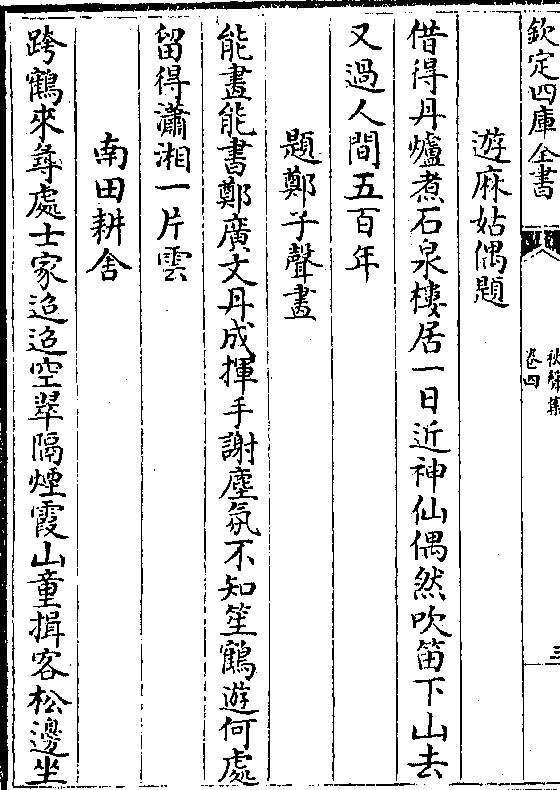 欽定四庫全書
秋聲集
卷四
三
遊麻姑偶題
借得丹爐煮石泉樓居一日近神仙偶然吹笛下山去
又過人間五百年
題鄭子聲畫
能畫能書鄭廣文丹成揮手謝塵氛不知笙鶴遊何處
留得瀟湘一片雲
南田耕舍
跨鶴來尋處士家迢迢空翠隔煙霞山童揖客松邊坐